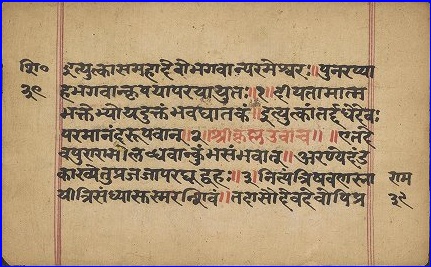 शि॰ इत्युत्काससमहादेवोभगवान्परमेश्वरः॥पुनरप्या
३९ हभगवान्कृपयापरयायुतः॥१॥दीयतामात्म
भक्तेभ्योयदुक्तंभवघातकं॥इत्युत्कांतर्दधेदेवः
परमानंदरूपवान्॥२॥श्रीकृष्णउवाच॥॥एतदे
वपुरारामोलब्धवान्कुंभसंभवात्॥अरण्येदंड
काख्येतुप्रजजापरघूद्वहः॥३॥नित्यंत्रिषवणस्ना राम
यीत्रिसंध्यास्तस्मरन्शिवं॥तदासौदेवदेवोपिप्र ३९